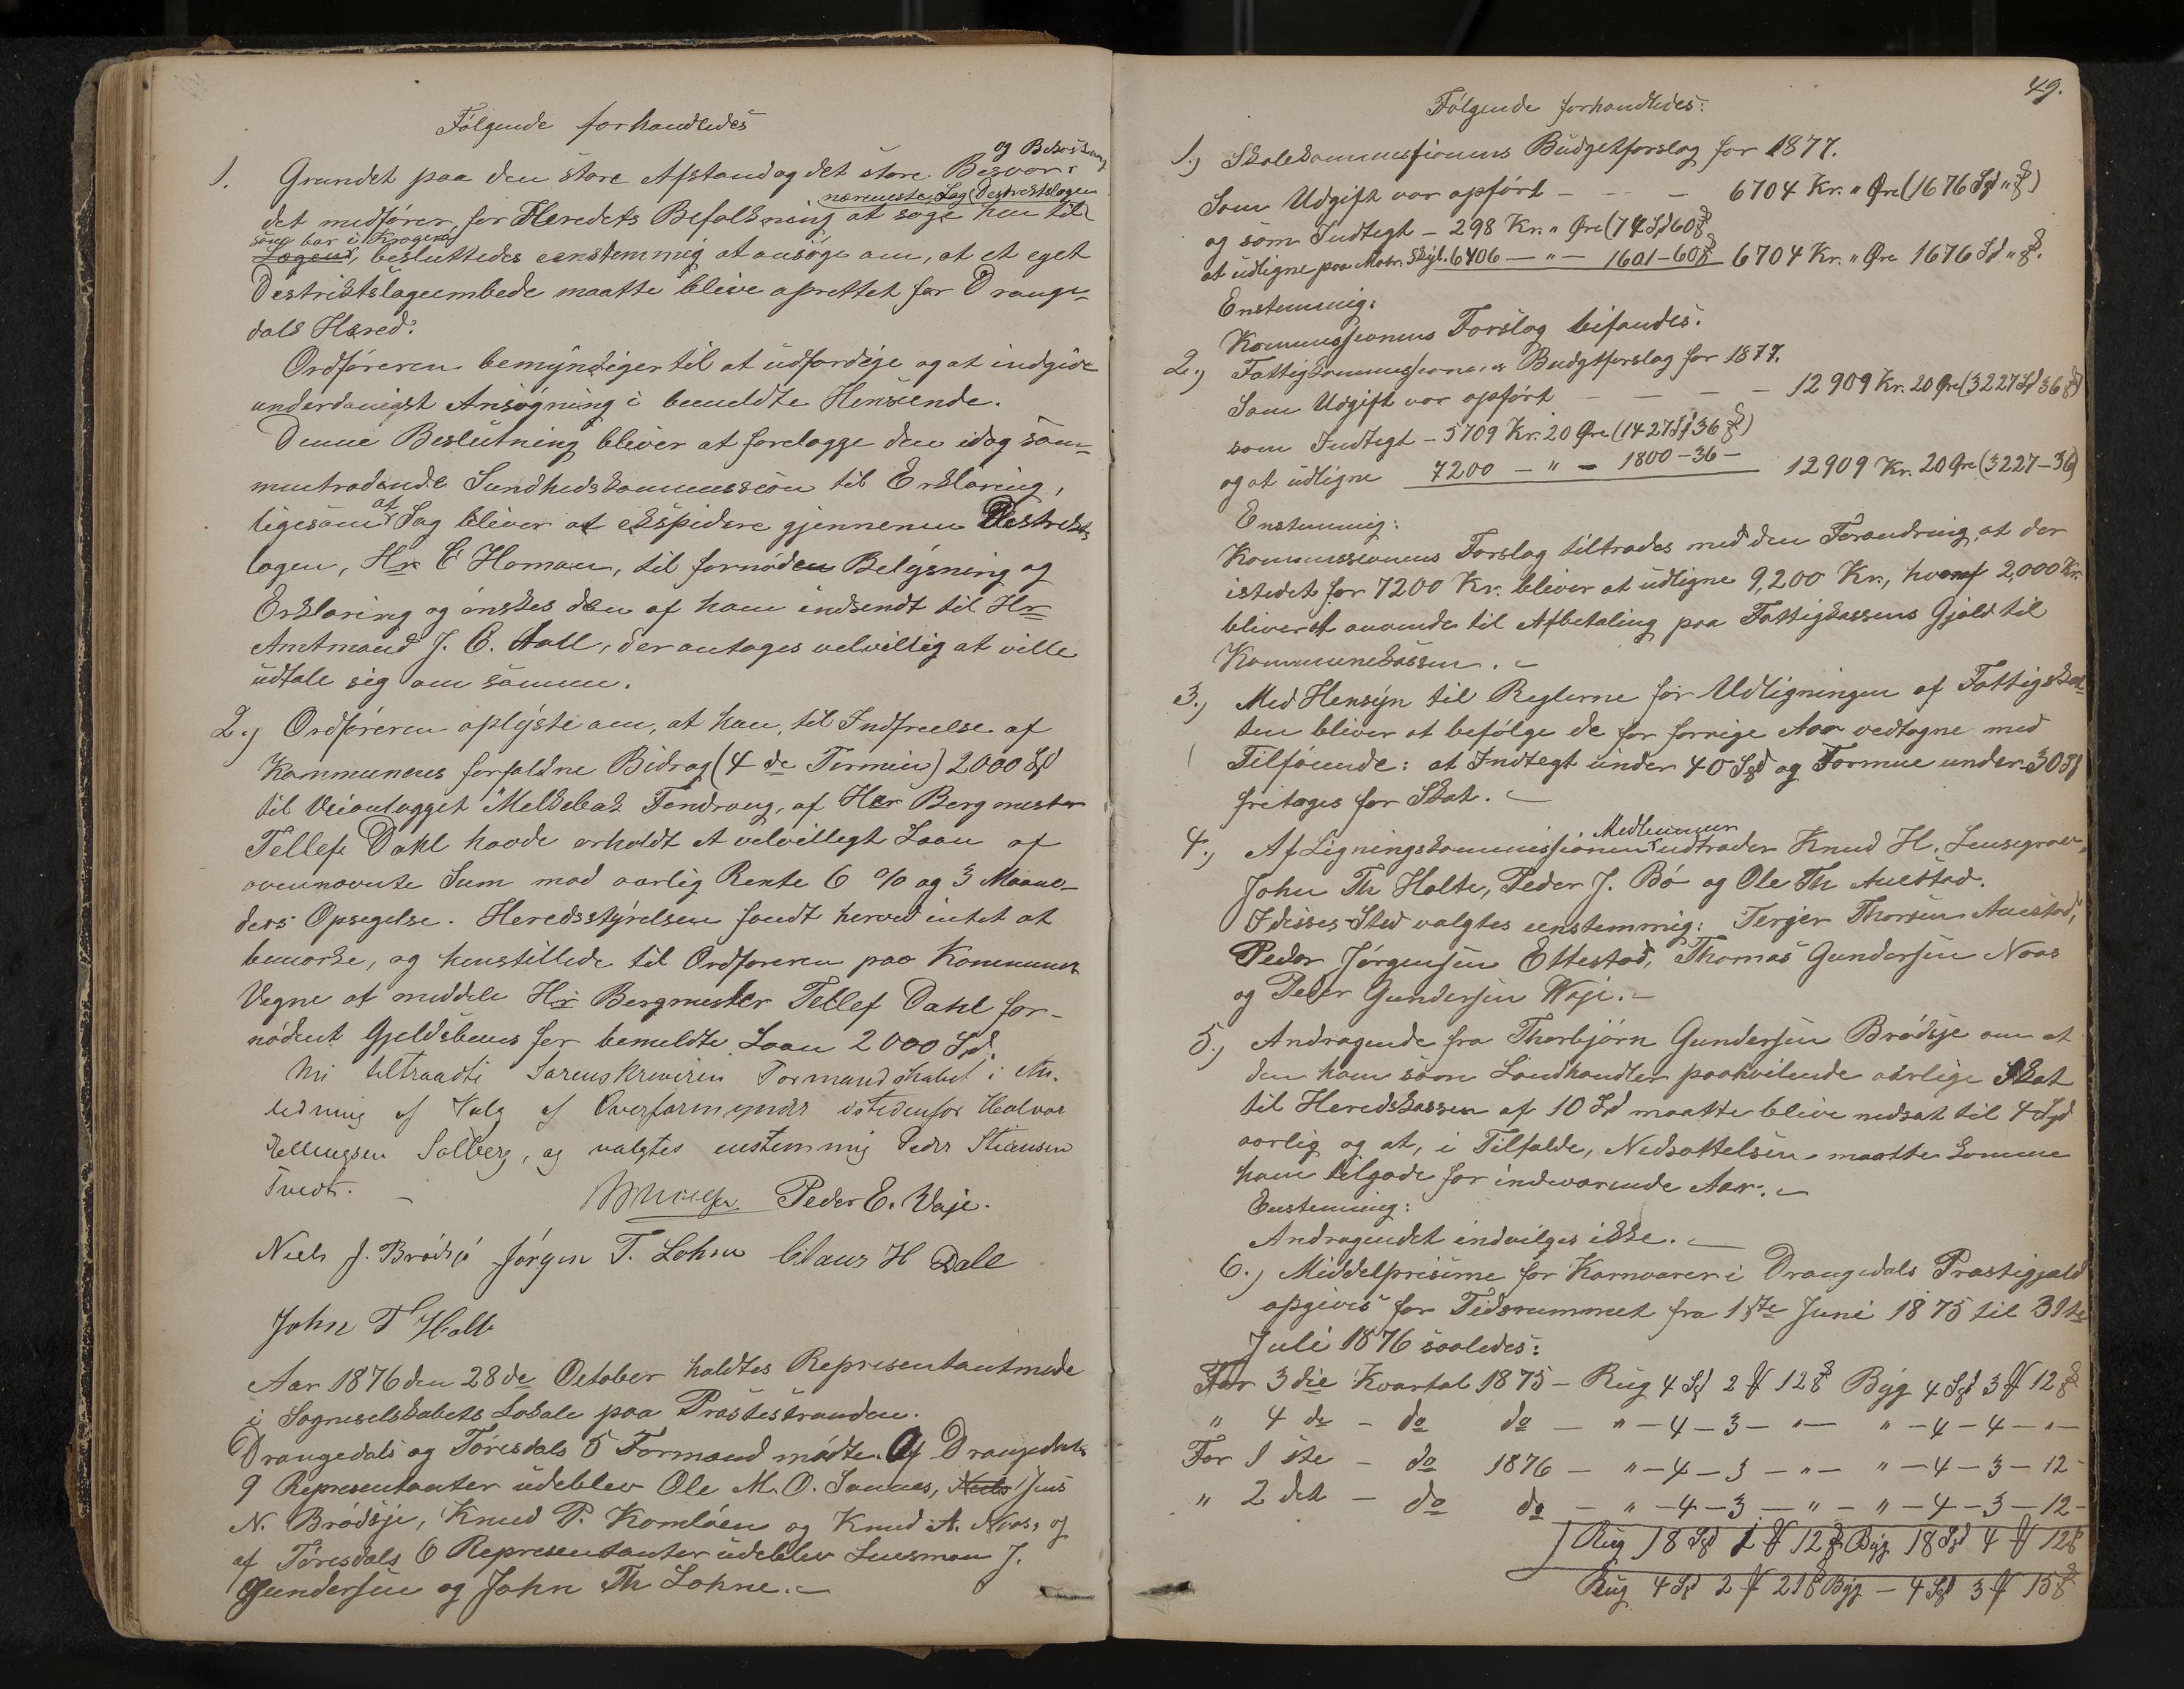 Følgende forhandledes
1. Grundet paa den store Afstand og det store Besvær og Bekostning
det medfører, for Heredets Befolkning at søge hen til nærmeste Læge Destriktslægen
som bor i Kragerø Lægens, besluttedes eenstemmig at ansøge om, at et eget
Destriktslægeembede maatte blive oprettet for Drange-
dals Hered.
Ordføreren bemyndiger til at udfærdige og at indgive
underdanigst Ansøgning i bemeldte Henseende.
Denne Beslutning bliver at forelægge den idag sam-
mentrædende Sundhedskommission til Erklæring,
ligesom at Sag bliver at ekspidere gjennem Destrikts
lægen, Hr C Homan, til fornøden Belysning og
Erklæring og ønskes den af ham indsendt til Hr
Amtmand J. C. Aall, der antages velvillig at ville
udtale sig om samme.
2.) Ordføreren oplyste om, at han, til Indfrielse af
Kommunens forfaldne Bidrag (4 de Termin) 2000 Spd
til Veianlægget Melkebæk Tendrang, af Her Bergmester
Tellef Dahl havde erholdt et velvilligt Laan af
ovennævnte Sum mod aarlig Rente 6 % og 3 Maane-
ders Opsigelse. Heredsstyrelsen fandt herved intet at
bemærke, og henstillede til Ordføreren paa Kommunens
Vegne at meddele Hr Bergmester Tellef Dahl for-
nødent Gjeldsbevis for bemeldte Laan 2000 Spd.
Nu tiltraadte Sorenskriveren Formandskabet i An-
ledning af Valg af Overformynder istedenfor Halvor
Ellingsen Solberg, og valgtes enstemmig Peder Stiansen
Tvedt.
Peder E. Vaje.
Niels J. Brødsjø Jørgen T. Lohne Claus H Dale
John T Holte
Aar 1876 den 28de October holdtes Representantmøde
i Sogneselskabets Lokale paa Præstestranden.
Drangedals og Tørisdals 5 Formænd mødte. Af Drangedals
9 Representanter udeblev Ole M. O. Sannes, Niels Jens
N. Brødsje, Knud P. Komløen og Knud A. Noas, og
af Tørisdals 6 Representanter udeblev Lensman J.
Gundersen og John Th Lohne.
49.
Følgende forhandledes:
1.) Skolekommissionens Budgetforslag for 1877.
Som Udgift var opført – – – 6704 Kr. " Øre (1676 Spd " ß)
og som Indtegt – 298 Kr. " Øre (74 Spd 60 ß
at udligne paa Matr. Skyl. 6406 – " – 1601 – 60 ß 6704 Kr. " Øre 1676 Spd " ß.
Enstemmig:
Kommissionens Forslag bifandes.
2.) Fattigkommissionens Budgtforslag for 1877.
Som Udgift var opført – – – – 12909 Kr. 20 Øre (3227 Spd 36 ß)
som Indtegt – 5709 Kr. 20 Øre (1427 Spd 36 ß)
og at udligne 7200 – " – 1800 – 36 – 12909 Kr. 20 Øre (3227 – 36)
Enstemmig:
Kommissionens Forslag tiltrædes med den Forandring, at der
istedet for 7200 Kr. bliver at udligne 9,200 Kr., hvoraf 2,000 Kr.
bliver at anvende til Afbetaling paa Fattigkassens Gjæld til
Kommunekassen.
3.) Med Hensyn til Reglerne for Udligningen af Fattigskat-
ten bliver at befølge de for forrige Aar vedtagne med
Tilføiende: at Indtegt under 40 Spd og Formue under 30 Spd
fritages for Skat.
4.) Af Ligningskommissionens Medlemmer udtræder Knud H. Lensegrav,
John Th Holte, Peder J. Bø og Ole Th Auestad.
I disses Sted valgtes eenstemmig: Terjer Thorsen Auestad,
Peder Jørgensen Ettestad, Thomas Gundersen Noas
og Peder Gundersen Waje.
5.) Andragende fra Thorbjørn Gundersen Brødsje om at
den ham som Landhandler paahvilende aarlige Skat
til Heredskassen af 10 Spd maatte blive nedsat til 4 Spd
aarlig og at, i Tilfælde, Nedsættelsen maatte komme
ham tilgode for indeværende Aar.
Eenstemmig:
Andragendet indvilges ikke.
6.) Middelprisene for Kornvarer i Drangedals Præstigjæld
opgives for Tidsrummet fra 1ste Juni 1875 til 31te
Juli 1876 saaledes:
For 3die Kvartal 1875 – Rug 4 Spd 2 ℔ 12 ß Byg 4 Spd 3 ℔ 12 ß
" 4 de – do do – " – 4 – 3 – " – " – 4 – 4 – " –
For 1 ste – do 1876 – " – 4 – 3 – " – " – 4 – 3 – 12 –
" 2 det – do do – " – 4 – 3 – " – " – 4 – 3 – 12 –
Rug 18 Spd 1 ℔ 12 ß Byg 18 Spd 4 ℔ 12 ß
Rug 4 Spd 2 ℔ 21 ß Byg – 4 Spd 3 ℔ 15 ß